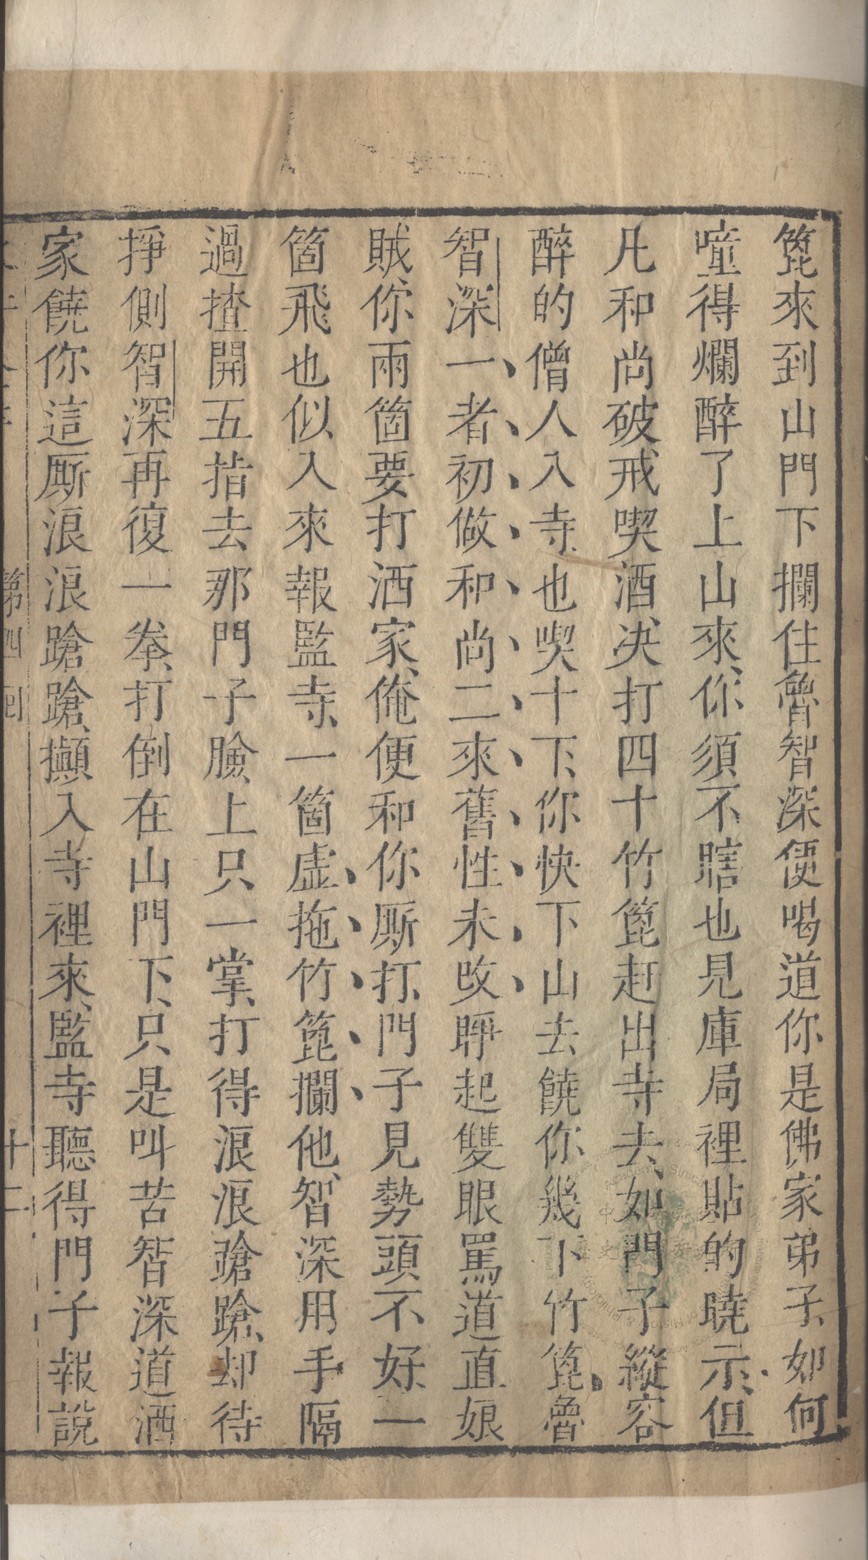 篦來到山門下攔住魯智深便喝道你是佛家弟子如何
噇得爛醉了上山來、你須不瞎也見庫局裡貼的曉示、但
凡和尚破戒喫酒、决打四十竹篦赶出寺去、如門子縱容
醉的僧人入寺也喫十下、你快下山去饒你幾下竹篦魯
智深一者初做和尚二來舊性未改睜起雙眼罵道直娘
賊、你兩箇要打洒家、俺便和你厮打、門子見勢頭不好一
箇飛也似入來報監寺、一箇虛拖竹篦攔他、智深用手隔
過揸開五指去那門子臉上只一掌、打得浪浪蹌蹌、却待
掙側智深再復一拳、打倒在山門下、只是叫苦智深道洒
家饒你這厮浪浪蹌蹌、攧入寺裡來、監寺聽得門子報說
第四回
十二